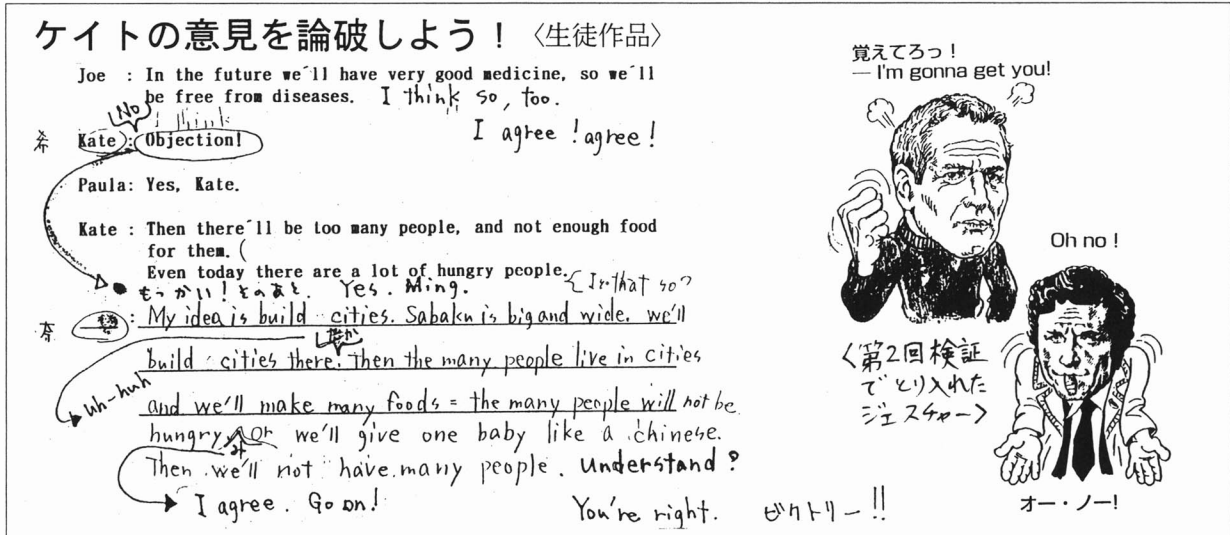 ケイトの意見を論破しよう！〈生徒作品〉
Joe : In the future we'll have very good medicine, so we'll
be free from diseases. I think so, too.
No I think
I agree ! agree !
希 Kate : Objection!
Paula: Yes, Kate.
Kate : Then there'll be too many people, and not enough food
for them. (
Even today there are a lot of hungry people. { Is that so?
もっかい！そのあと. Yes. Ming.
: My idea is build cities. Sabaku is big and wide. we'll
build cities there. Then the many people live in cities
uh-huh
and we'll make many foods = the many people will not be
hungry or we'll give one baby like a chinese.
Then we'll not have many people. Understand?
I agree. Go on!
You're right. ビクトリー!!
覚えてろっ！
— I'm gonna get you!
Oh no !
〈第2回検証
でとり入れた
ジェスチャー〉
オー・ノー!